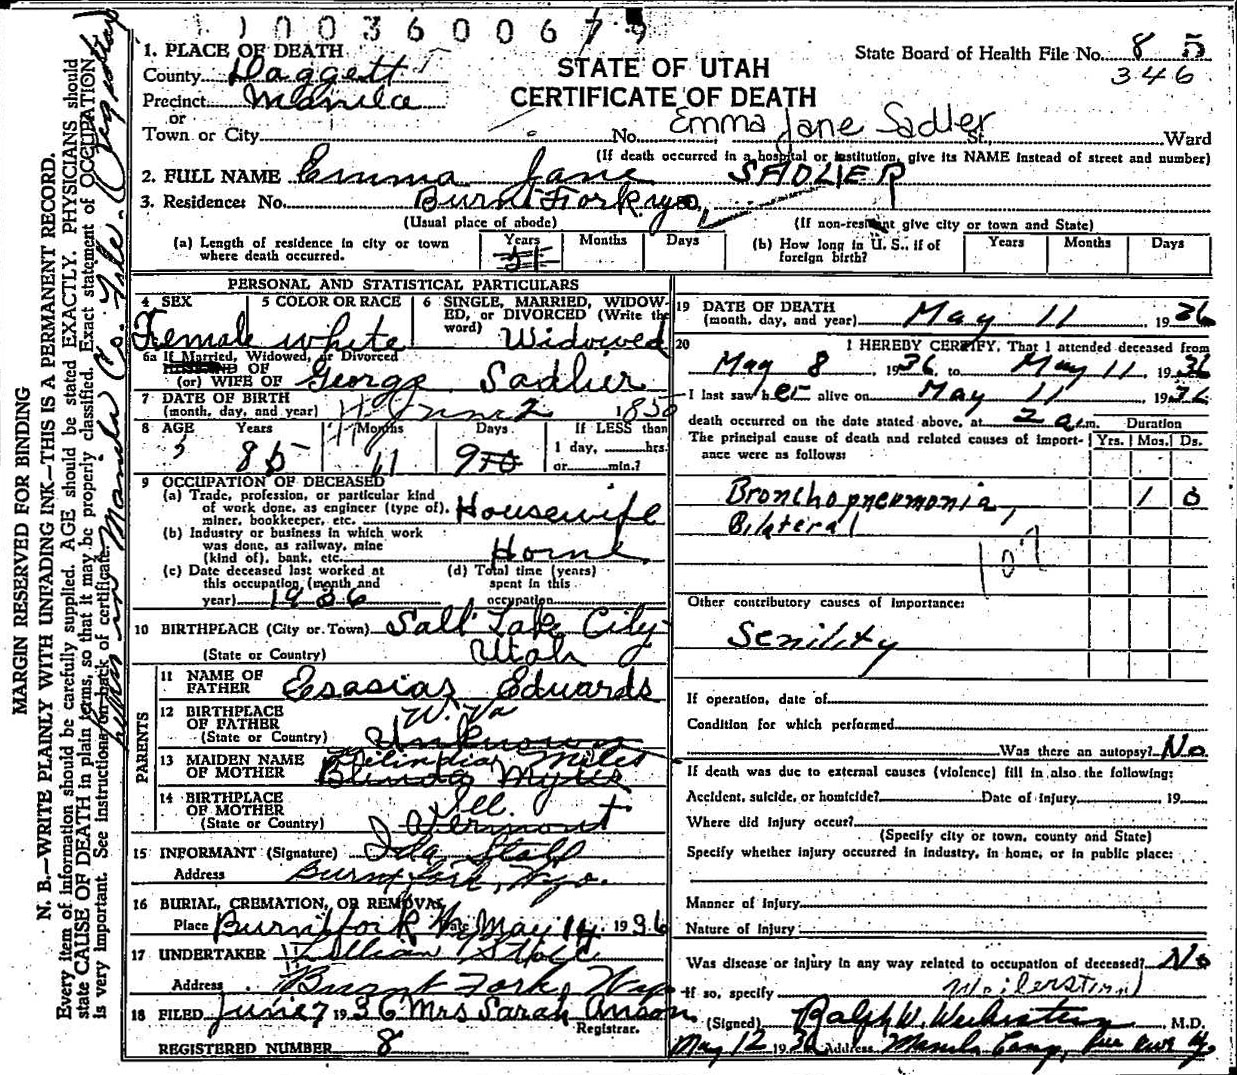 1 0 0 3 6 0 0 6 7 9
1. PLACE OF DEATH
County Daggett
Precinct Manila
or
Town or City No. St., Ward
STATE OF UTAH
CERTIFICATE OF DEATH
State Board of Health File No. 8 5
346
Emma Jane Sadler
(If death occurred in a hospital or institution, give its NAME instead of street and number)
2. FULL NAME Emma Jane SADLIER
3. Residence: No. Burnt Fork Wyo.
(Usual place of abode) (If non-resident give city or town and State)
(a) Length of residence in city or town where death occurred. Years Months Days
(b) How long in U. S., if of foreign birth? Years Months Days
PERSONAL AND STATISTICAL PARTICULARS
4 SEX 5 COLOR OR RACE 6 SINGLE, MARRIED, WIDOWED, or DIVORCED (Write the word)
Female white Widowed
6a If Married, Widowed, or Divorced
HUSBAND OF
(or) WIFE OF George Sadlier
7 DATE OF BIRTH
(month, day, and year) June 2 1850
8 AGE Years Months Days If LESS than
1 day, hrs.
or min.?
85 11 9
9 OCCUPATION OF DECEASED
(a) Trade, profession, or particular kind of work done, as engineer (type of), miner, bookkeeper, etc. Housewife
(b) Industry or business in which work was done, as railway, mine (kind of), bank, etc. Home
(c) Date deceased last worked at this occupation (month and year) 1936
(d) Total time (years) spent in this occupation
10 BIRTHPLACE (City or Town) Salt Lake City
(State or Country) Utah
PARENTS
11 NAME OF FATHER Esasias Edwards
12 BIRTHPLACE OF FATHER W. Va
(State or Country) Unknown
13 MAIDEN NAME OF MOTHER Miles
14 BIRTHPLACE OF MOTHER Ill.
(State or Country) Vermont
15 INFORMANT (Signature) Ida Stoll
Address Burnt fork, Wyo.
16 BURIAL, CREMATION, OR REMOVAL
Place Burnt fork Date May 14 1936
17 UNDERTAKER Lillian Stoll
Address Burnt Fork, Wyo
18 FILED June 7 1936 Mrs Sarah Anson
Registrar.
REGISTERED NUMBER 8
19 DATE OF DEATH
(month, day, and year) May 11 1936
20 I HEREBY CERTIFY, That I attended deceased from
May 8, 1936 to May 11, 1936
I last saw her alive on May 11 1936
death occurred on the date stated above, at 2 a.m. Duration
The principal cause of death and related causes of importance were as follows: Yrs. Mos. Ds.
Bronchopneumonia, 1 0
Bilateral
107
Other contributory causes of importance:
Senility
If operation, date of
Condition for which performed
Was there an autopsy? No
If death was due to external causes (violence) fill in also the following:
Accident, suicide, or homicide? Date of injury 19
Where did injury occur?
(Specify city or town, county and State)
Specify whether injury occurred in industry, in home, or in public place:
Manner of injury
Nature of injury
Was disease or injury in any way related to occupation of deceased? No
If so, specify
(Signed) Ralph W. M.D.
May 12 1936 Address Manila Camp,
MARGIN RESERVED FOR BINDING
N. B.—WRITE PLAINLY WITH UNFADING INK—THIS IS A PERMANENT RECORD.
Every item of information should be carefully supplied. AGE should be stated EXACTLY. PHYSICIANS should
state CAUSE OF DEATH in plain terms, so that it may be properly classified. Exact statement of OCCUPATION
is very important. See instructions on back of certificate.